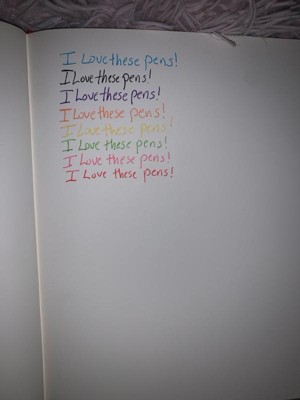 I Love these pens!
I Love these pens!
I Love these pens!
I Love these pens!
I Love these pens!
I Love these pens!
I Love these pens!
I Love these pens!